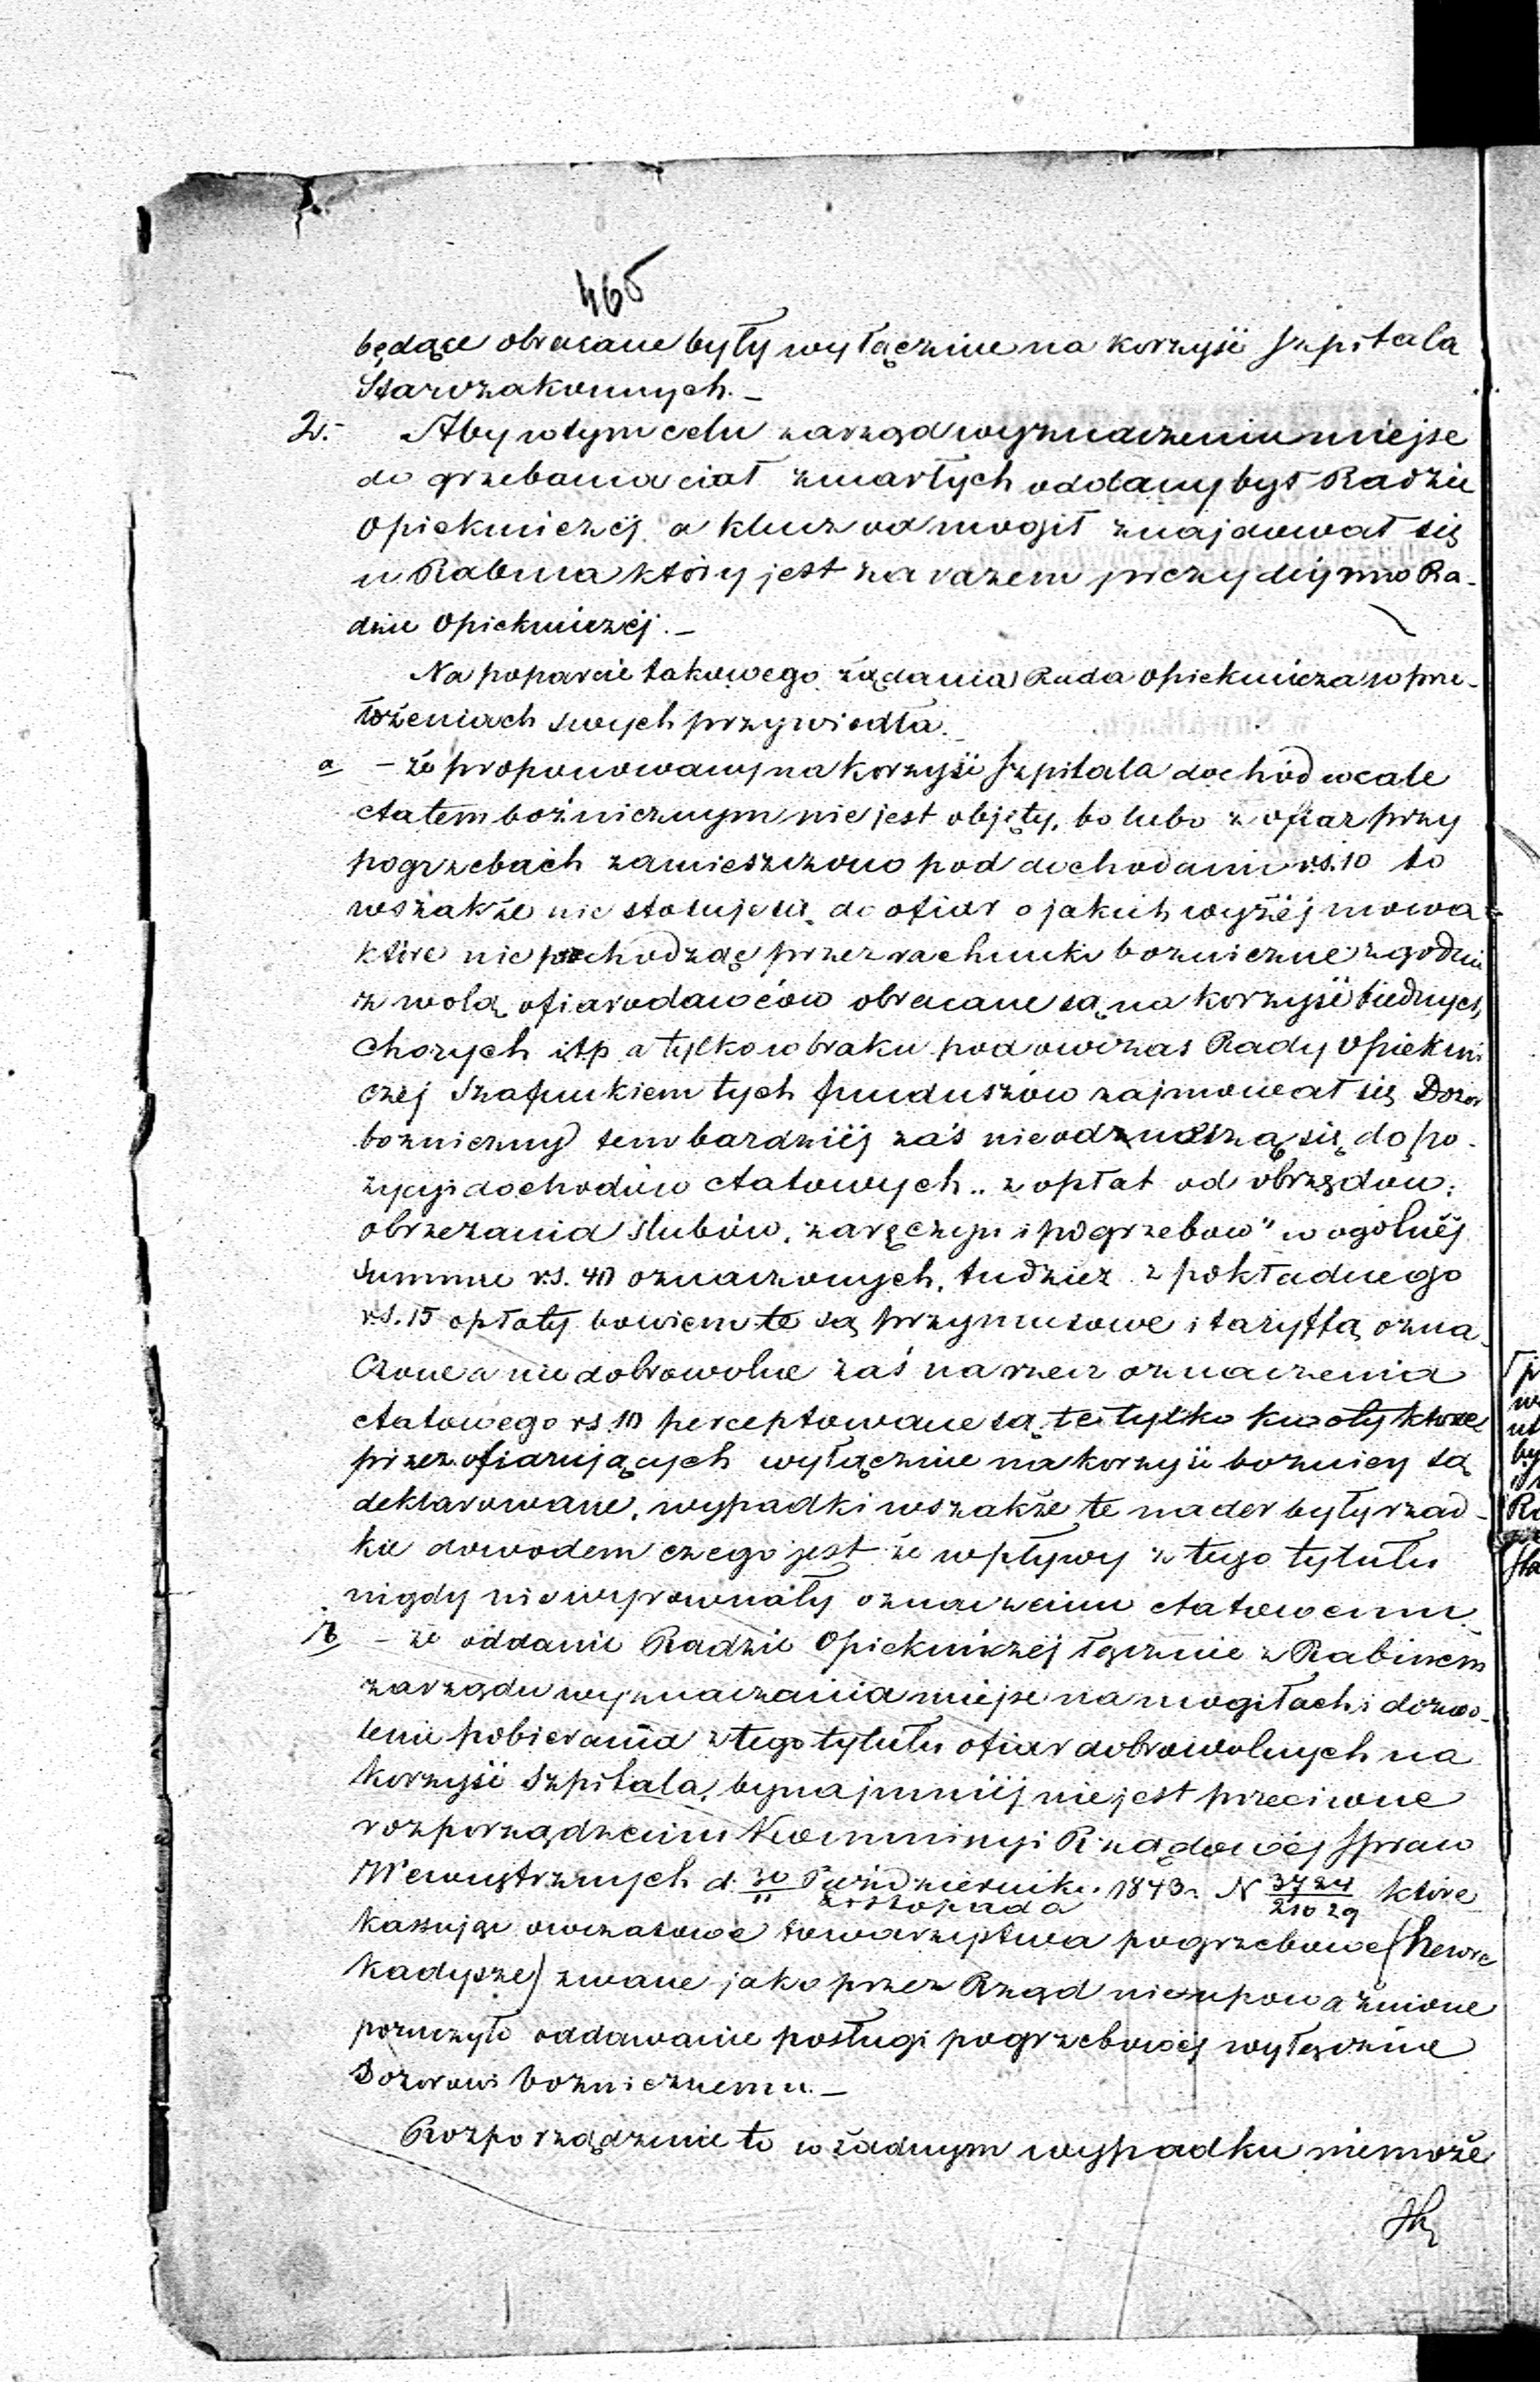 465
będące obracane były wyłącznie na korzyść Szpitala
Starozakonnych. –
2. – Aby w tym celu zarząd wyznaczenia miejsc
do grzebania ciał zmarłych oddany był Radzie
Opiekuńczej a klucz od mogił znajdował się
u Rabina który jest zarazem prezydującym w Ra-
dzie Opiekuńczej. –
Na poparcie takowego żądania Rada Opiekuńcza w prze-
łożeniach swych przywiodła. –
a – że proponowany na korzyść Szpitala dochód wcale
etatem bożnicznym nie jest objęty, bo lubo z ofiar przy
pogrzebach zamieszczono pod dochodami rs. 10 to
wszakże nie stosuje się do ofiar o jakich wyżej mowa
które nie przechodząc przez rachunki bożniczne zgodnie
z wolą ofiarodawców obracane są na korzyść biednych,
chorych itp a tylko w braku podówczas Rady Opiekuń
czej szafunkiem tych funduszów zajmował się Dozór
bożniczny tem bardziej zaś nie odnoszą się do po-
zycyi dochodów etatowych „z opłat od obrzędów:
obrzezania ślubów, zaręczyn i pogrzebów" w ogólnej
summie rs. 40 oznaczonych, tudzież z pokładnego
rs. 15 opłaty bowiem te są przymusowe i taryffą ozna
czone a nie dobrowolne zaś na rzecz oznaczenia
etatowego rs 10 perceptowane są te tylko kwoty które
przez ofiarujących wyłącznie na korzyść bożnicy są
deklarowane, wypadki wszakże te nader były rzad-
kie dowodem czego jest że wpływy z tego tytułu
nigdy nie wyrównały oznaczeniu etatowemu.
b – że oddanie Radzie Opiekuńczej łącznie z Rabinem
zarządu wyznaczania miejsc na mogiłach i dozwo-
lenie pobierania z tego tytułu ofiar dobrowolnych na
korzyść Szpitala, bynajmniej nie jest przeciwne
rozporządzeniu Kommissyi Rządowej Spraw
Wewnętrznych d. 30/11 Października/Listopada 1843 r. N 3724/21029 które
kassując owczasowe towarzystwa pogrzebowe (hewre
kadysze) zwane jako przez Rząd nieupoważnione
poruczyło oddawanie posługi pogrzebowej wyłącznie
Dozorowi bożnicznemu. –
Rozporządzenie to w żadnym wypadku niemoże